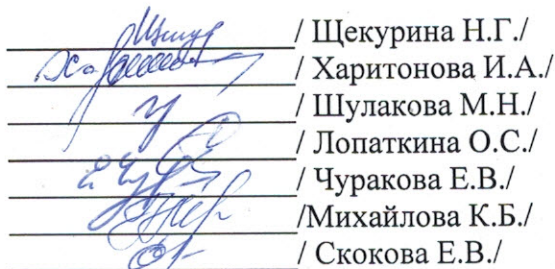 / Щекурина Н.Г./
/ Харитонова И.А./
/ Шулакова М.Н./
/ Лопаткина О.С./
/ Чуракова Е.В./
/Михайлова К.Б./
/ Скокова Е.В./